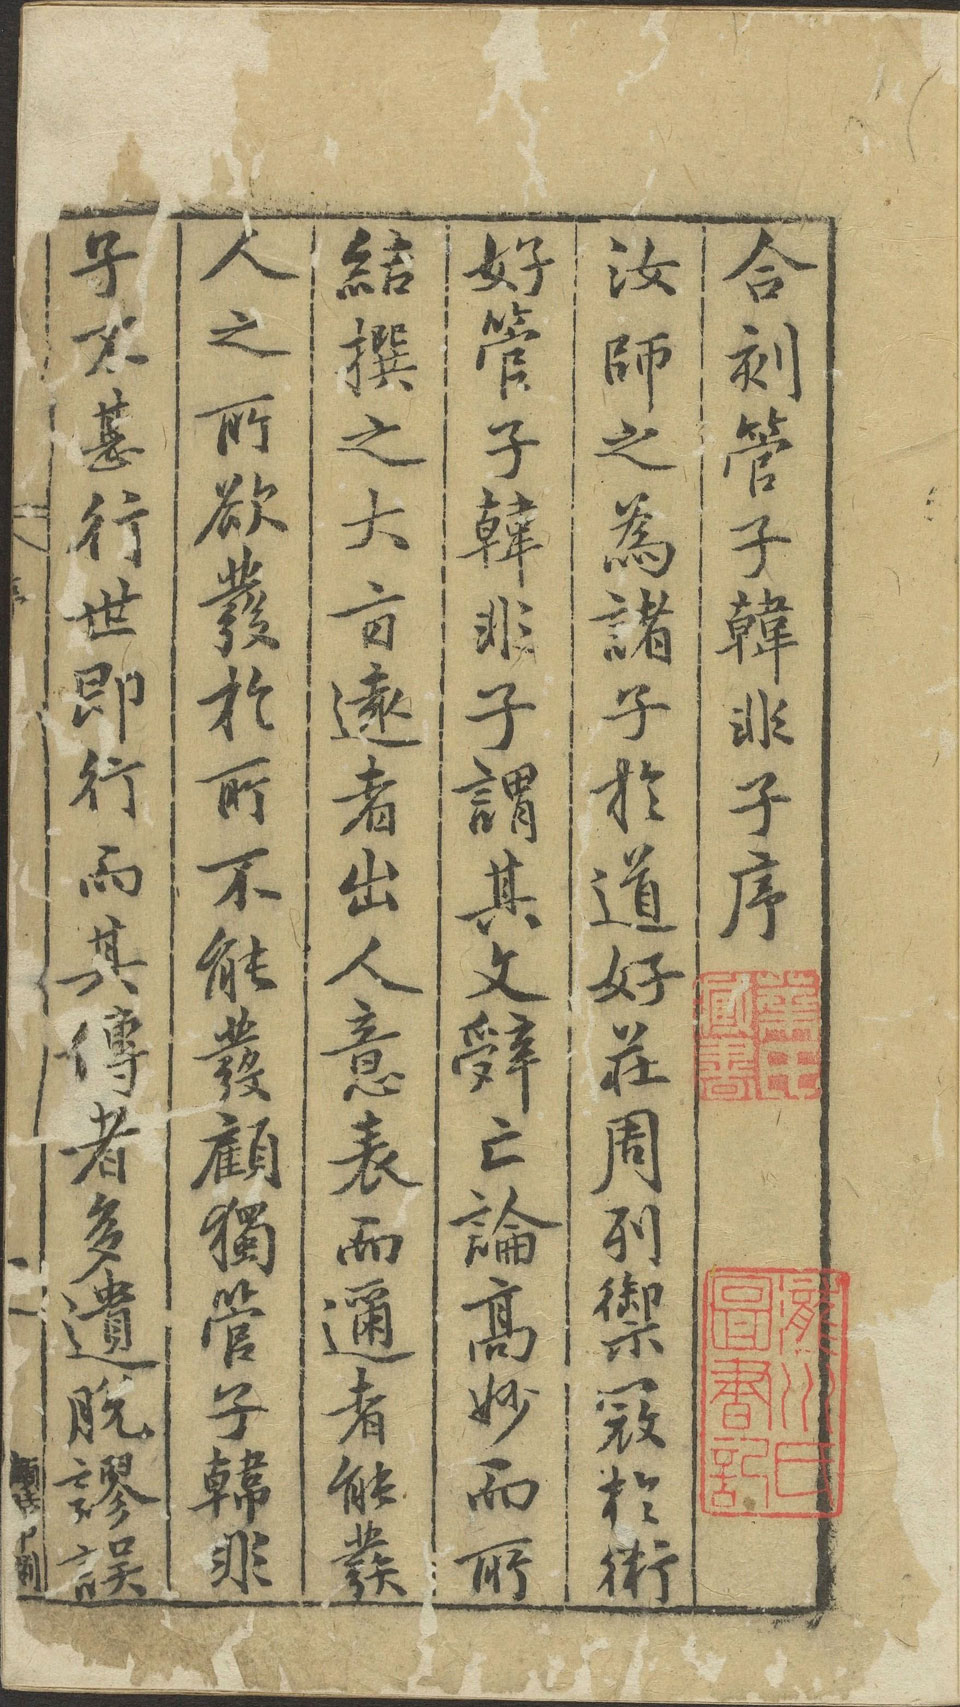 合刻管子韓非子序
汝師之為諸子於道好莊周列禦寇於術
好管子韓非子謂其文辭亡論髙妙而所
結撰之大㫖遠者出人意表而邇者能發
人之所欲發於所不能發顧獨管子韓非
子不甚行世即行而其傳者多遺脫謬誤
瀧川氏
圖書記
序